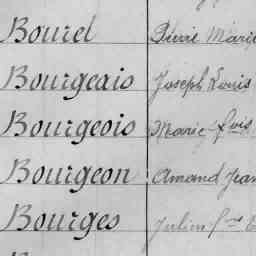 Bourel Pierre Marie
Bourgeais Joseph Louis
Bourgeois Marie fois
Bourgeon Amand Jean
Bourges Julien f